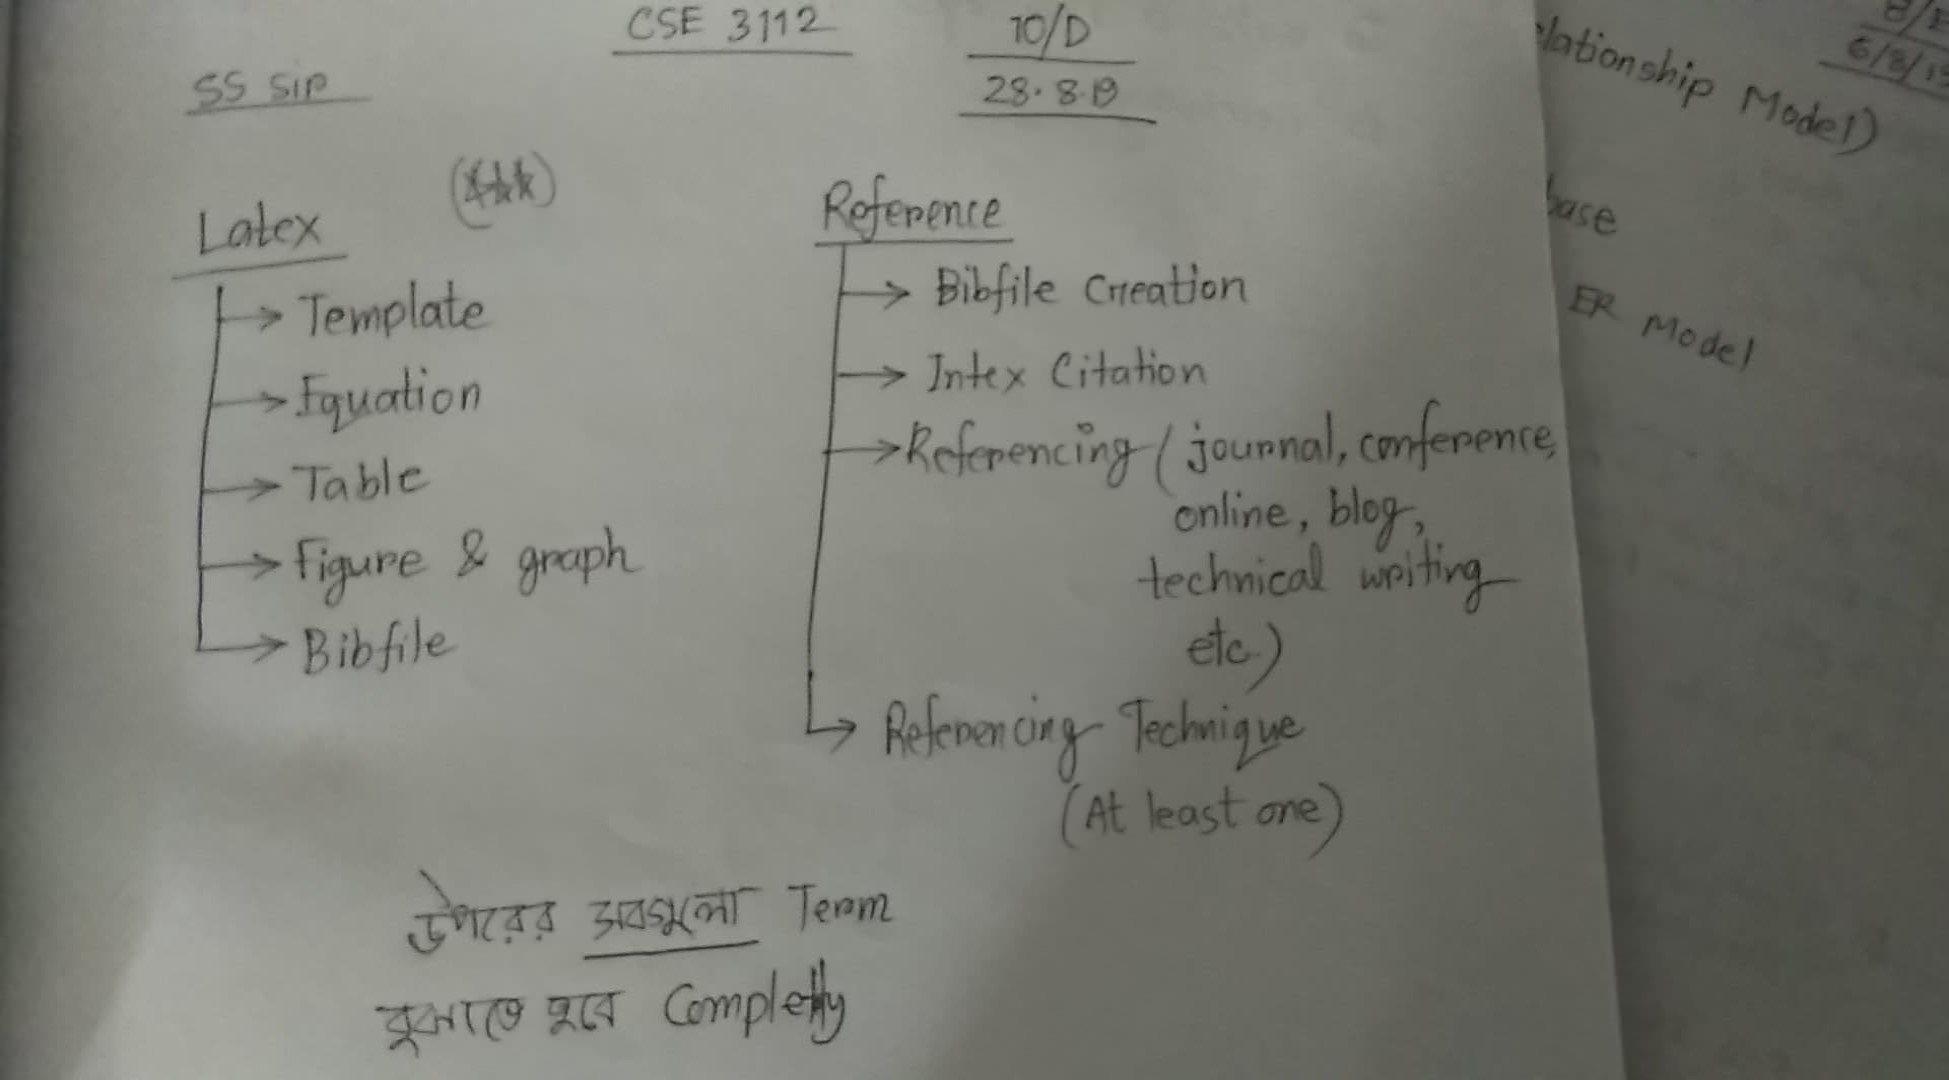 CSE 3112
10/D
28.8.19
SS Sir
(***)
Latex
Template
Equation
Table
Figure & graph
Bibfile
Reference
Bibfile Creation
Intex Citation
Referencing (journal, conference,
online, blog,
technical writing
etc.)
Referencing Technique
(At least one)
উপরের সবগুলো Term
বুঝাতে হবে Completly
lationship Model)
base
ER Model